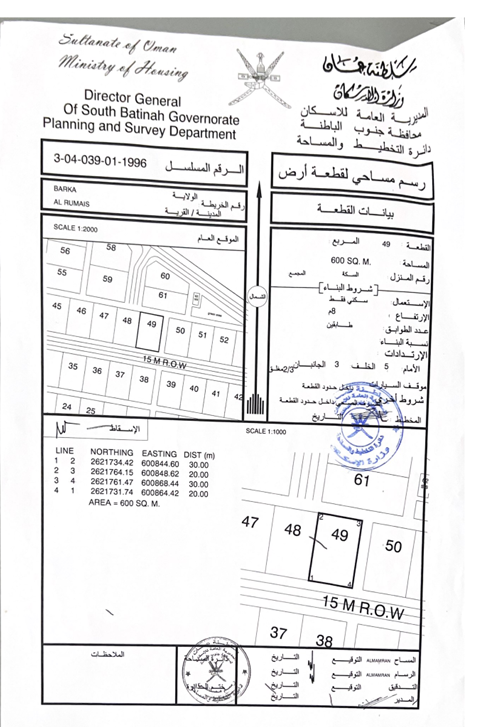 Sultanate of Oman
Ministry of Housing
Director General
Of South Batinah Governorate
Planning and Survey Department
سلطنة عمان
وزارة الإسكان
المديرية العامة للاسكان
محافظة جنوب الباطنة
دائرة التخطيط والمساحة
3-04-039-01-1996 الرقم المسلسل
رسم مساحي لقطعة أرض
BARKA الولاية
رقم الخريطة
AL RUMAIS المدينة / القرية
بيانات القطعة
SCALE 1:2000 الموقع العام
56 58
55 59 60
61
45 46 47 48 49 50 51 52
15 M R.O.W
35 36 37 38 39 40 41 42
24 25
الشمال
القطعة 49 المربع
المساحة 600 SQ. M.
رقم المنزل السكة المجمع
شروط البناء
الإستعمال سكني فقط
الإرتفاع 8م
عدد الطوابق طابقين
نسبة البناء
الإرتدادات
الأمام 5 الخلف 3 الجانبان 2/3مغلق
موقف السيارات داخل حدود القطعة
شروط أخرى داخل حدود القطعة
المخطط التاريخ
الإسقاط
SCALE 1:1000
LINE NORTHING EASTING DIST (m)
1 2 2621734.42 600844.60 30.00
2 3 2621764.15 600848.62 20.00
3 4 2621761.47 600868.44 30.00
4 1 2621731.74 600864.42 20.00
AREA = 600 SQ. M.
61
47 48 49 50
2 3
1 4
15 M R.O.W
37 38
الملاحظات
المساح ALMAMRAN التوقيع التاريخ
الرسام ALMAMRAN التوقيع التاريخ
التدقيق التوقيع التاريخ
المدير التاريخ